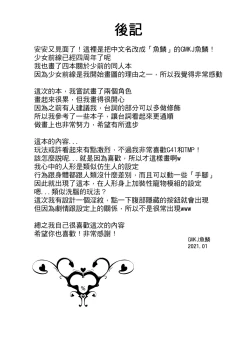 後記
安安又見面了！這裡是把中文名改成「魚鱗」的GMKJ魚鱗！
少女前線已經四周年了呢
我也畫了四本關於少前的同人本
因為少女前線是我開始畫圖的理由之一，所以我覺得非常感動
這次的本，我嘗試畫了兩個角色
畫起來很累，但我畫得很開心
因為之前有人建議我，台詞的部分可以多做修飾
所以我參考了一些本子，讓台詞看起來更通順
做畫上也非常努力，希望有所進步
這本的內容...
玩法或許看起來有點激烈，不過我非常喜歡G41和TMP！
該怎麼說呢...就是因為喜歡，所以才這樣畫啊w
我心中的人形是類似仿生人的設定
行為跟身體都跟人類沒什麼差別，而且可以動一些「手腳」
因此就出現了這本，在人形身上加裝性寵物模組的設定
嗯...類似洗腦的玩法？
這次我有設計一個淫紋，點一下腹部隱藏的按鈕就會出現
但因為劇情跟設定上的關係，所以不是很常出現www
總之我自己很喜歡這次的內容
希望你也喜歡！非常感謝！
GMKJ魚鱗
2021.01